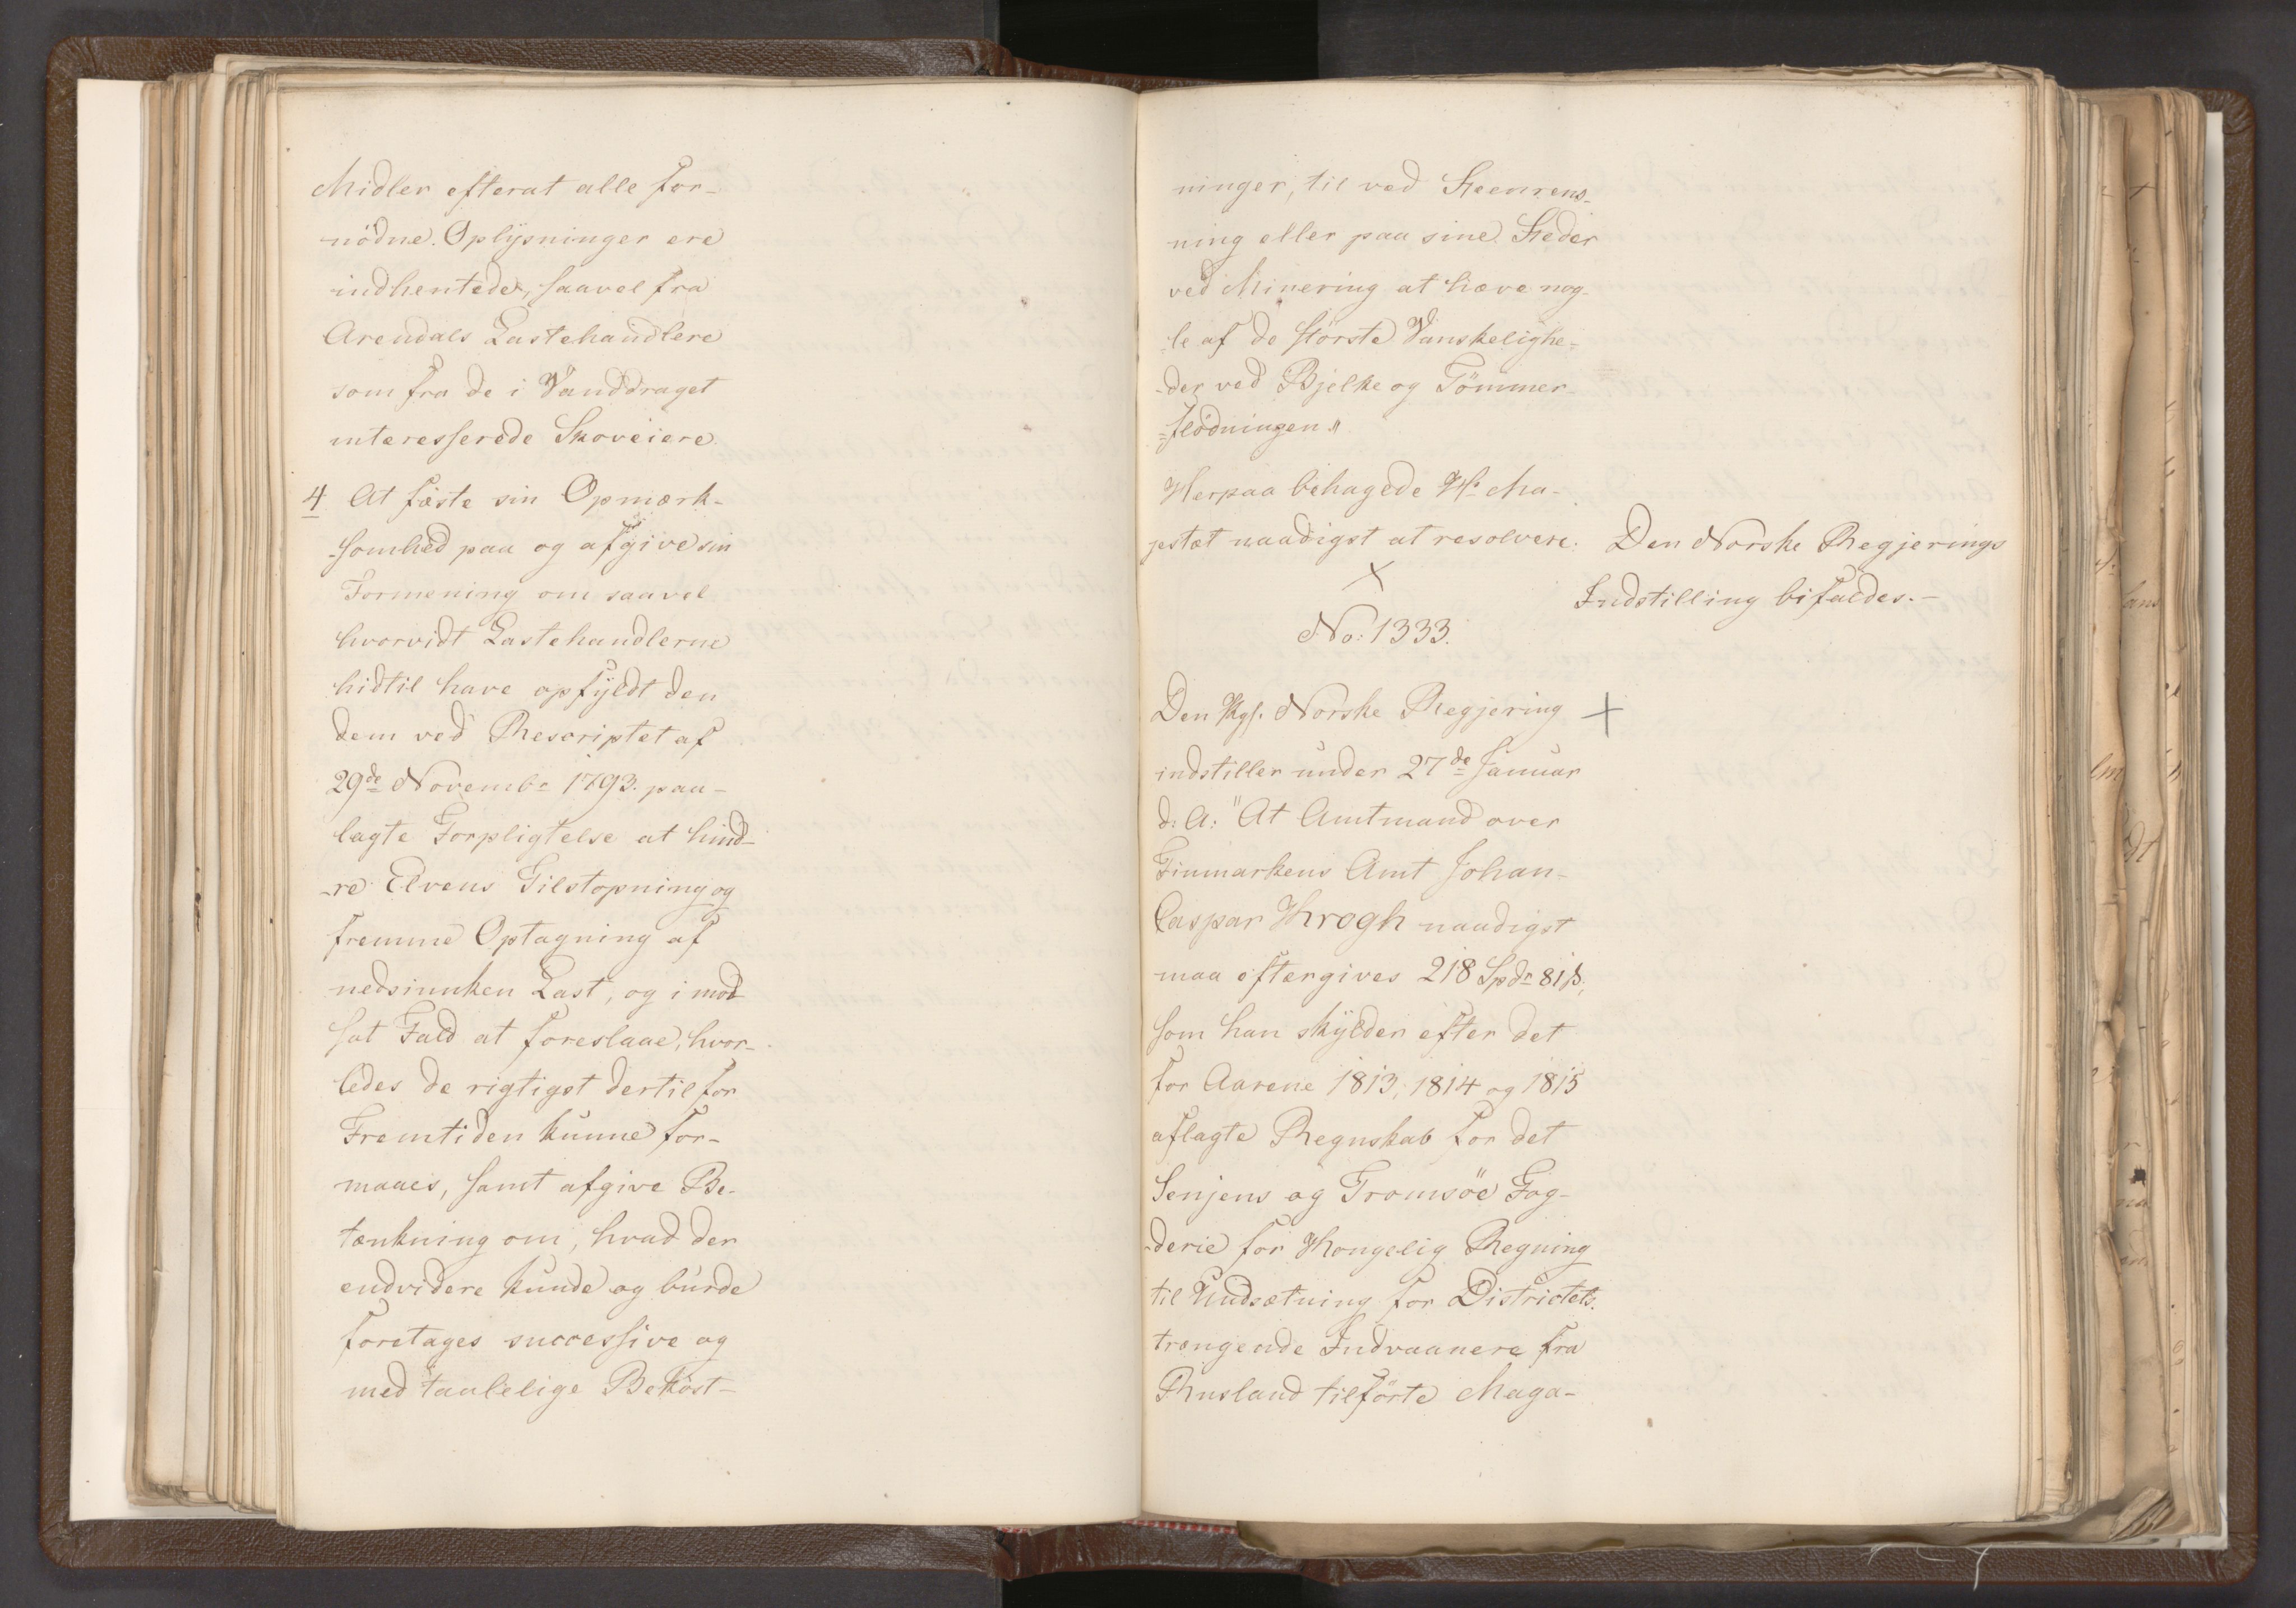 Midler efterat alle for-
nödne Oplÿsninger ere
indhentede, saavel fra
Arendals Lastehandlere
som fra de i Vanddraget
interesserede Skoveiere.
4 At fæste sin Opmærk-
-somhed paa og afgive sin
Formening om saavel
hvorvidt Lastehandlerne
hidtil have opfÿldt den
dem ved Rescriptet af
29de Novembr 1793. paa-
lagte Forpligtelse at hind-
-re Elvens Tilstopning og
fremme Optagning af
nedsiunken Last, og i mod
sat Fald at foreslaae, hvor-
ledes de rigtigst dertil for
Fremtiden kunne for-
maaes, samt afgive Be-
tænkning om, hvad der
endvidere kunde og burde
foretages successive og
med taalelige Bekost-
ninger, til ved Steenrens-
ning eller paa sine Steder
ved Minering at hæve nog-
-le af de störste Vanskelighe-
-der ved Bjelke og Tömmer-
=flödningen."
Herpaa behagede Hs Ma-
jestæt naadigst at resolvere:
Den Norske Regjerings
Indstilling bifaldes.-
X
No: 1333.
Den Kgl. Norske Regjering +
indstiller under 27de Januar
d: A: "At Amtmand over
Finmarkens Amt Johan-
Caspar Krogh naadigst
maa eftergives 218 Spdr 81 ß,
som han skÿlder efter det
for Aarene 1813, 1814 og 1815
aflagte Regnskab for det
Senjens og Tromsöe Fog-
-derie for Kongelig Regning
til Undsætning for Districtets
trængende Indvaanere fra
Rusland tilförte Maga-